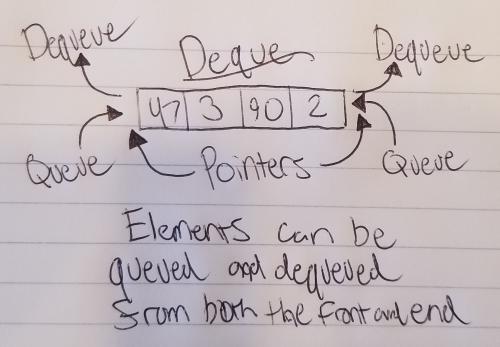 Dequeue Deque Dequeue
47 3 90 2
Queue Pointers Queue
Elements can be
queued and dequeued
from both the front and end